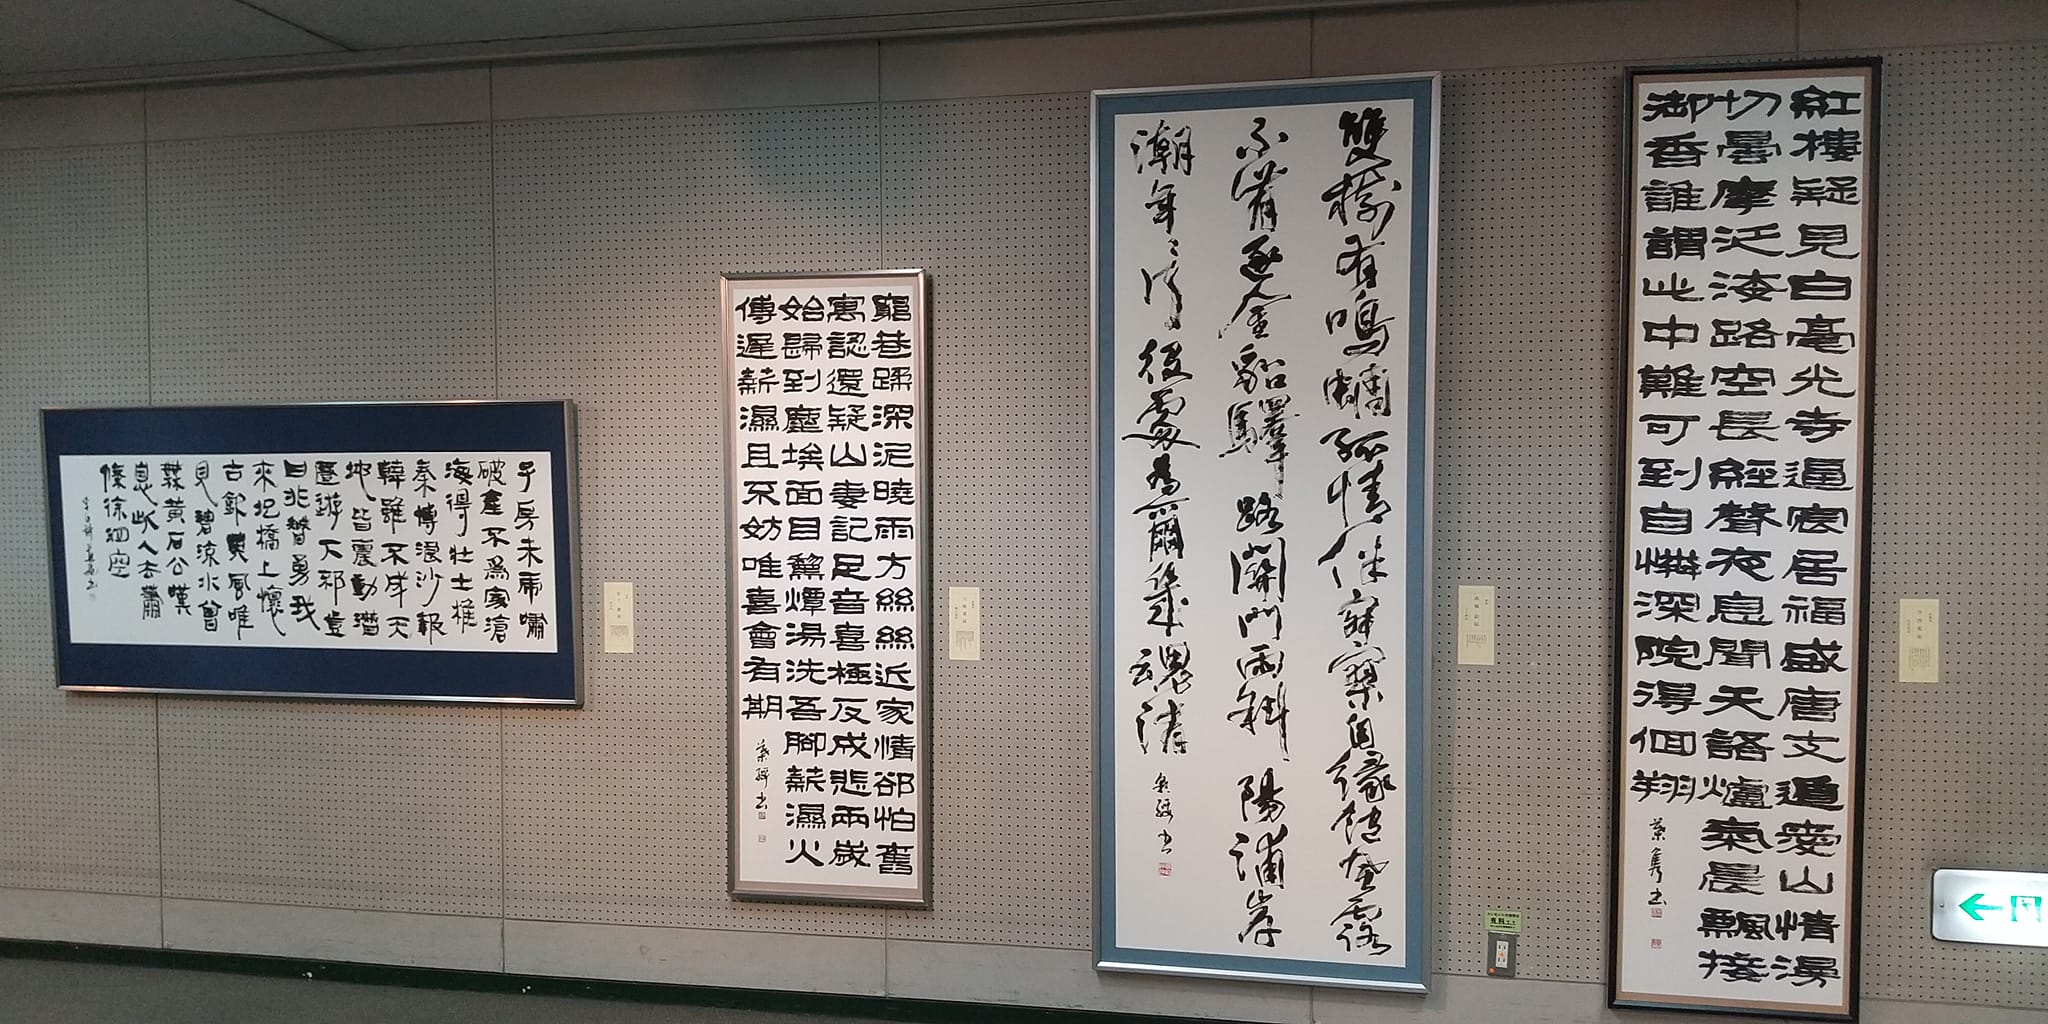 紅樓疑見白毫光寺逼宸居福盛唐支遁愛山情漫
切曇摩泛海路空長經聲夜息聞天語爐氣晨飄接
御香誰謂此中難可到自憐深院得徊翔
書
雙樹有鳴孤情伴寂寥自緣風露
不肯逐金貂驛路關門雨斜陽浦岸
潮年〻處為爾集魂
書
窮巷蹂深泥曉雨方絲絲近家情卻怕舊
寓認還疑山妻記足音喜極反成悲兩歲
始歸到塵埃面目黧燂湯洗吾腳薪濕火
傳遲薪濕且不妨唯喜會有期
書
子房未虎嘯
破產不爲家滄
海得壯士椎
秦博浪沙報
韓雖不成天
地皆震動潛
匿遊下邳豈
曰非智勇我
來圯橋上懷
古欽英風唯
見碧流水曾
無黃石公嘆
息此人去蕭
條徐泗空
李白詩
有料